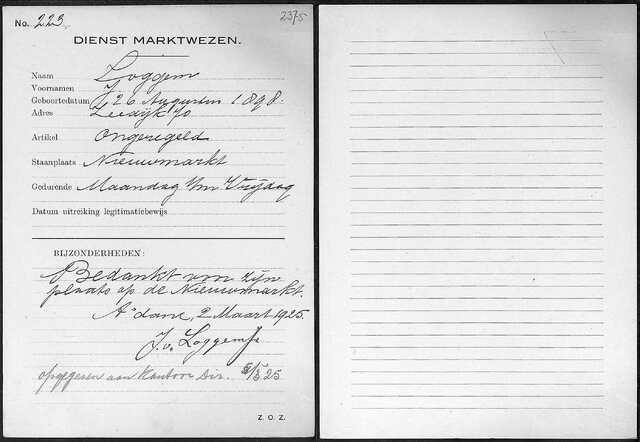 No. 223. 2375
DIENST MARKTWEZEN.
Naam Loggem
Voornamen J.
Geboortedatum 26 Augustus 1898.
Adres Zeedijk
Artikel ongeregeld
Staanplaats Nieuwmarkt
Gedurende Maandag t/m Vrijdag
Datum uitreiking legitimatiebewijs
BIJZONDERHEDEN:
Bedankt voor zijn
plaats op de Nieuwmarkt.
A'dam, 2 Maart 1925.
J. v. Loggem
opgegeven aan Kantoor Dir. 5/3 25
Z. O. Z.